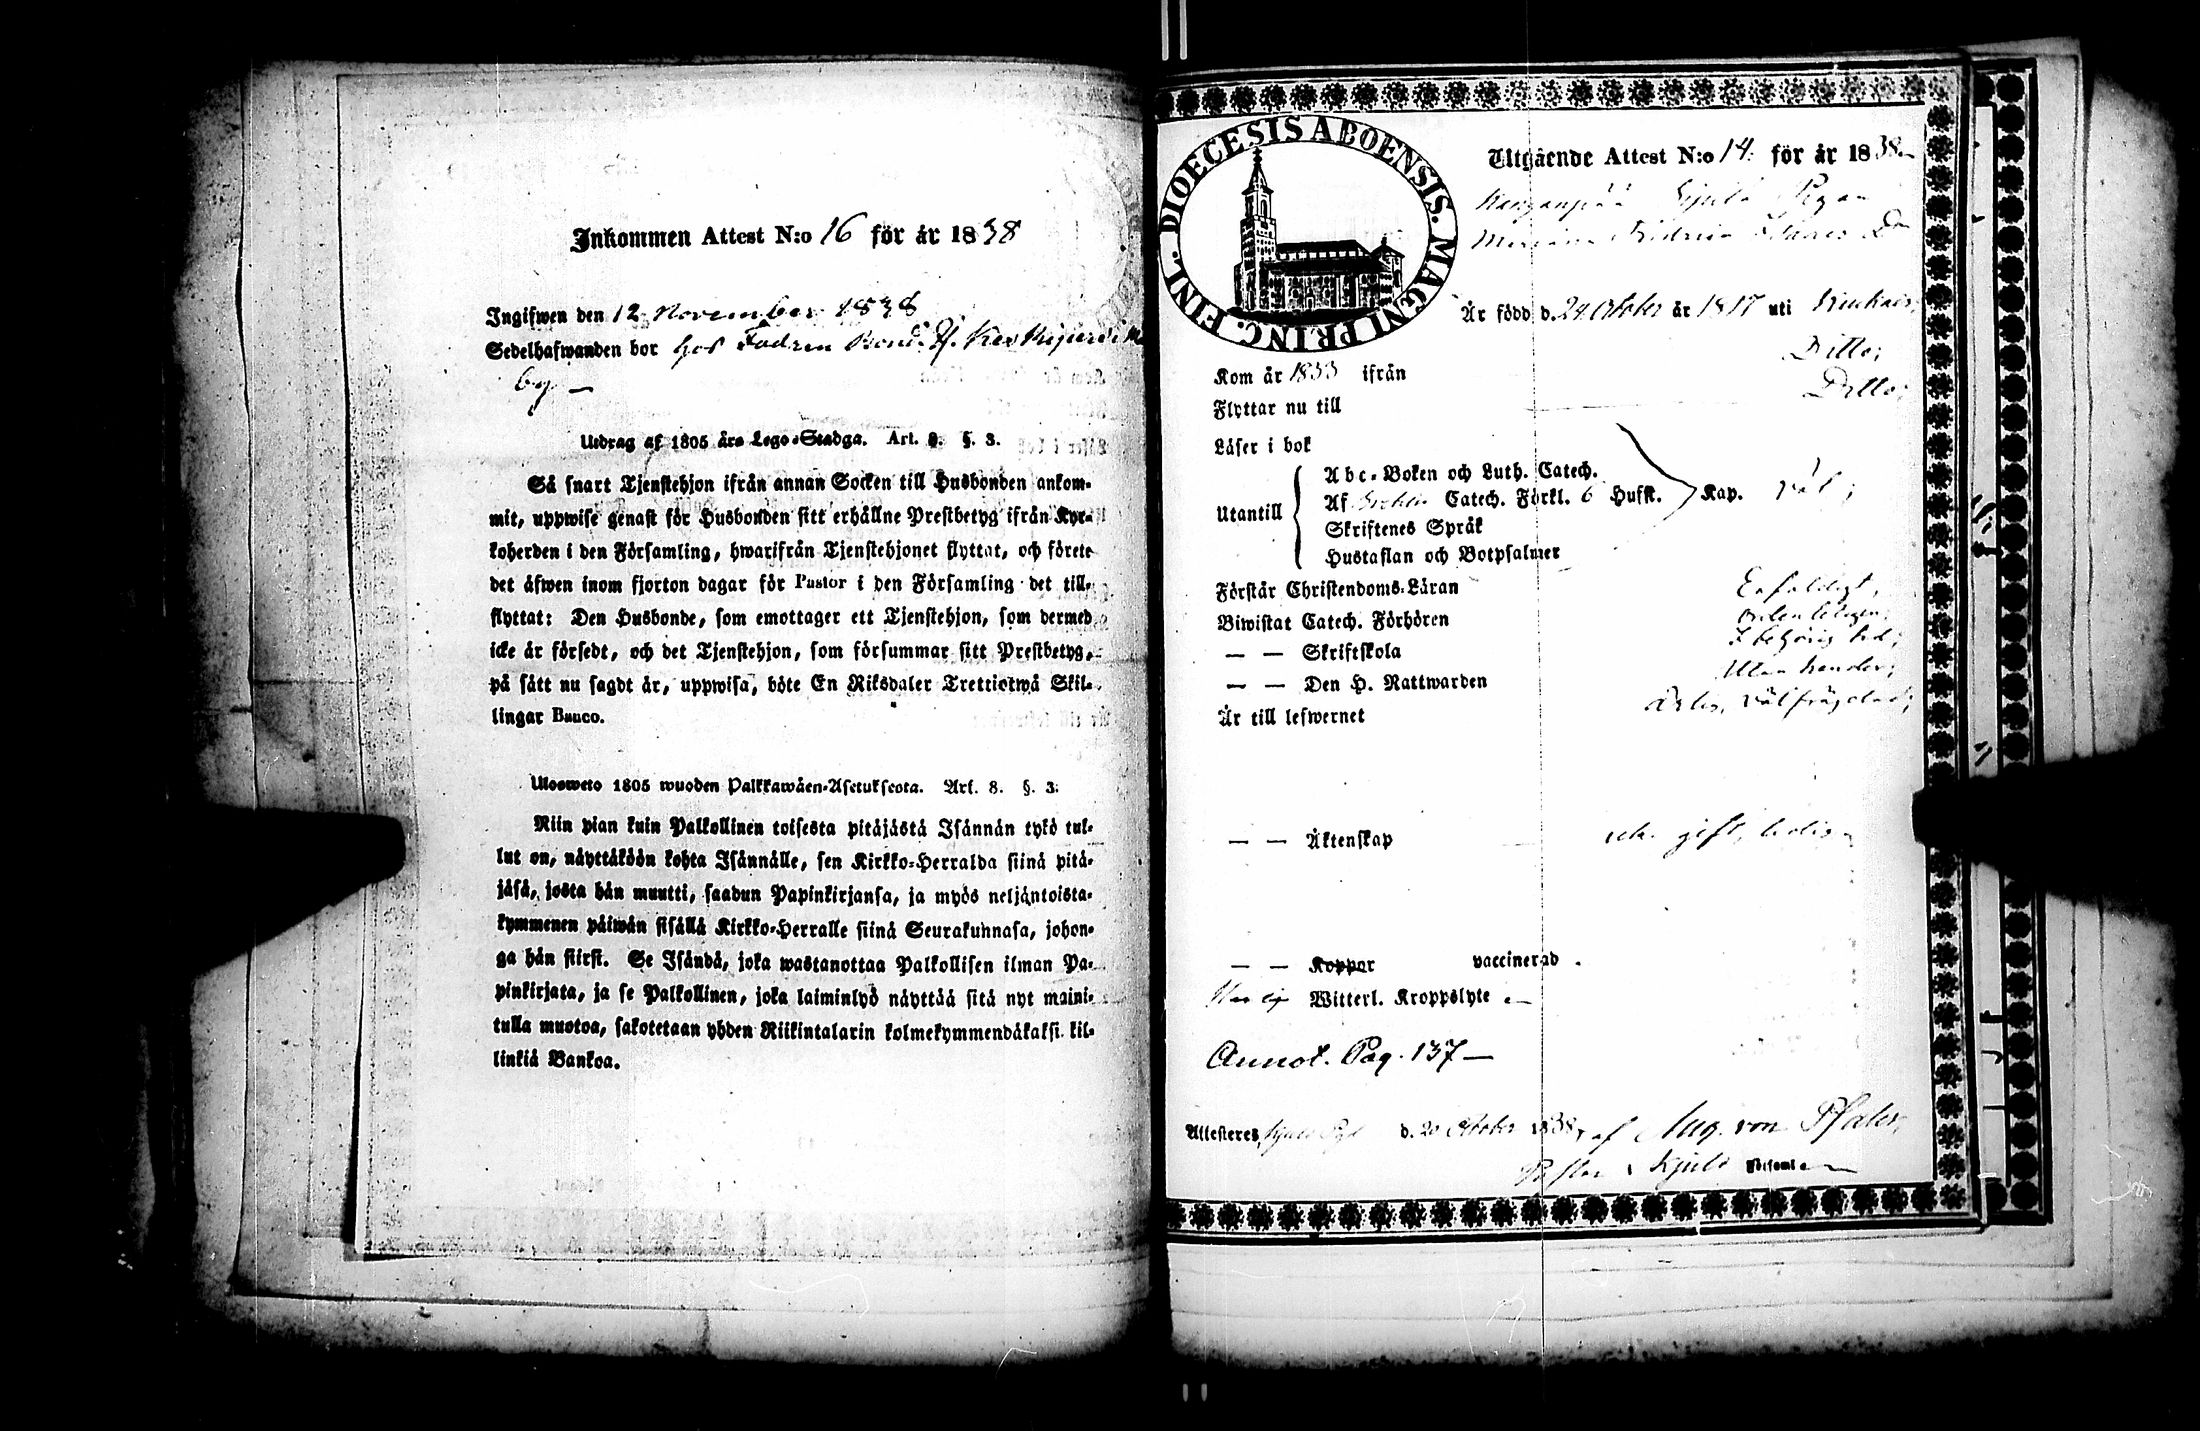 Inkommen Attest N:o 16 för år 1838
Ingifwen den 12 November 1838
Sedelhafwanden bor hos Fadren Bond.
by. —
Utdrag af 1805 års Lego-Stadga. Art. 8. §. 3.
Så snart Tjenstehjon ifrån annan Socken till Husbonden ankom-
mit, uppwise genast för Husbonden sitt erhållne Prestbetyg ifrån Kyr-
koherden i den Församling, hwarifrån Tjenstehjonet flyttat, och förete
det äfwen inom fjorton dagar för Pastor i den Församling det till-
flyttat: Den Husbonde, som emottager ett Tjenstehjon, som dermed
icke är försedt, och det Tjenstehjon, som försummar sitt Prestbetyg,
på sätt nu sagdt är, uppwisa, böte En Riksdaler Trettiotwå Skil-
lingar Banco.
Ulosweto 1805 wuoden Palkkawäen-Asetuksesta. Art. 8. §. 3.
Niin pian kuin Palkollinen toisesta pitäjästä Isännän tykö tul-
lut on, näyttäköön kohta Isännälle, sen Kirkko-Herralda siinä pitä-
jäsä, josta hän muutti, saadun Papinkirjansa, ja myös neljäntoista-
kymmenen päiwän sisällä Kirkko-Herralle siinä Seurakunnasa, johon-
ga hän siirst. Se Isändä, joka wastanottaa Palkollisen ilman Pa-
pinkirjata, ja se Palkollinen, joka laiminlyö näyttää sitä nyt maini-
tulla muotoa, sakotetaan yhden Riikintalarin kolmekymmendäkaksi kil-
linkiä Bankoa.
DIOECESIS ABOENSIS. MAGNI PRINC. FINL.
Utgående Attest N:o 14. för år 1838.
Är född d. 24 October år 1817 uti
Ditto;
Kom år 1833 ifrån
Ditto;
Flyttar nu till
Läser i bok
Abc-Boken och Luth. Catech.
Utantill Af Catech. Förkl. 6 Hufst. Kap. väl;
Skriftenes Språk
Hustaflan och Botpsalmer
Förstår Christendoms-Läran Enfaldigt,
Biwistat Catech. Förhören
— — Skriftskola I behörig tid;
— — Den H. Nattwarden Utan hinder;
Är till lefwernet Ärlig, välfrägdad;
— — Äktenskap gift, ledig
— — Koppor vaccinerad.
Har ej Witterl. Kroppslyte —
Annot. Pag. 137 —
Attesteres, d. 20 October 1838, af Aug. von Pfaler,
Pastor i Kjulo Församl.